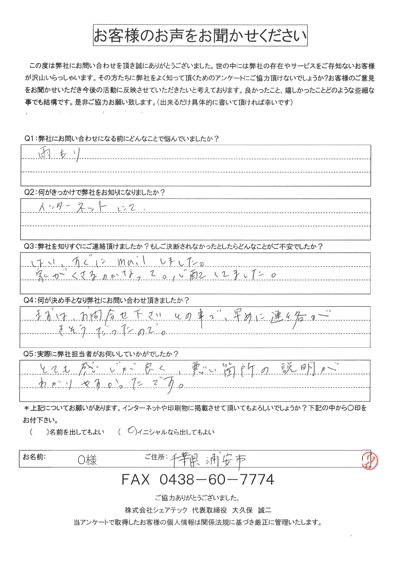 お客様のお声をお聞かせください
この度は弊社にお問い合わせを頂き誠にありがとうございました。世の中には弊社の存在やサービスをご存知ないお客様
が沢山いらっしゃいます。その方たちに弊社をよく知って頂くためのアンケートにご協力頂けないでしょうか?お客様のご意見
をお聞かせいただき今後の活動に反映させていただきたいと考えております。良かったこと、嬉しかったことどのような些細な
事でも結構です。是非ご協力お願い致します。(出来るだけ具体的に書いて頂ければ幸いです)
Q1:弊社にお問い合わせになる前にどんなことで悩んでいましたか?
雨もり
Q2:何がきっかけで弊社をお知りになりましたか?
インターネットにて.
Q3:弊社を知りすぐにご連絡頂けましたか?もしご決断されなかったとしたらどんなことがご不安でしたか?
はい、すぐに mail しました。
家がくさるのがこわくて。心配してました。
Q4:何が決め手となり弊社にお問い合わせ頂きましたか?
まずは、お問合せ下さい との事で、早めに連絡が
きそうだったので。
Q5:実際に弊社担当者がお伺いしていかがでしたか?
とても感じが良く、悪い箇所の説明が
わかりやすかったです。
*上記についてお願いがあります。インターネットや印刷物に掲載させて頂いてもよろしいでしょうか?下記の中から〇印を
お付下さい。
( )名前を出してもよい ( 〇 )イニシャルなら出してもよい
お名前: O様 ご住所: 千葉県浦安市
FAX 0438-60-7774
ご協力ありがとうございました。
株式会社シェアテック 代表取締役 大久保 誠二
当アンケートで取得したお客様の個人情報は関係法規に基づき厳正に管理いたします。